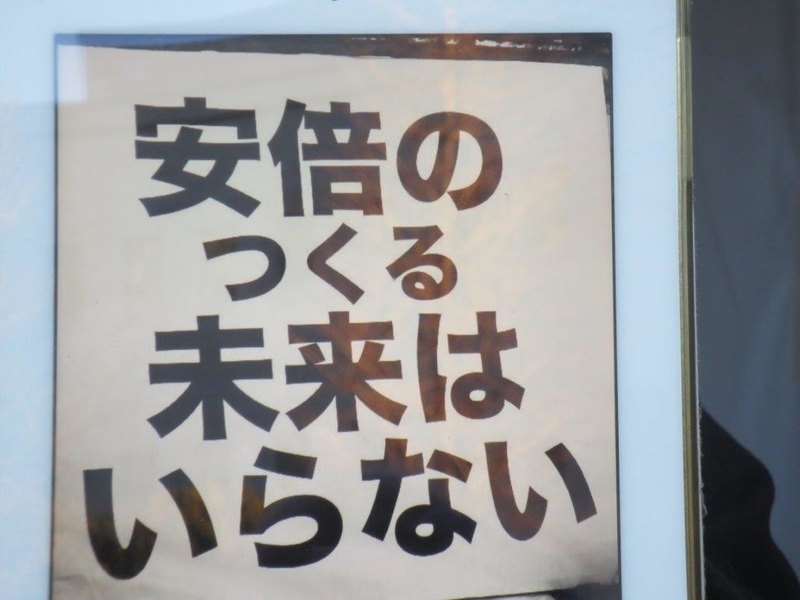 安倍の
つくる
未来は
いらない